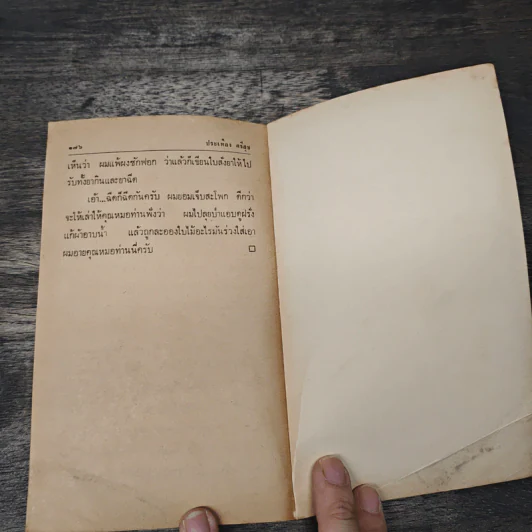 ๑๗๖ ประเทือง ศรีสุข
เห็นว่า ผมแพ้ผงซักฟอก ว่าแล้วก็เขียนใบสั่งยาให้ไป
รับทั้งยากินและยาฉีด
เอ้า...ฉีดก็ฉีดกันครับ ผมยอมเจ็บสะโพก ดีกว่า
จะให้เล่าให้คุณหมอท่านฟังว่า ผมไปลุยป่าแอบดูฝรั่ง
แก้ผ้าอาบน้ำ แล้วถูกละอองใบไม้อะไรมันร่วงใส่เอา
ผมอายคุณหมอท่านนี่ครับ